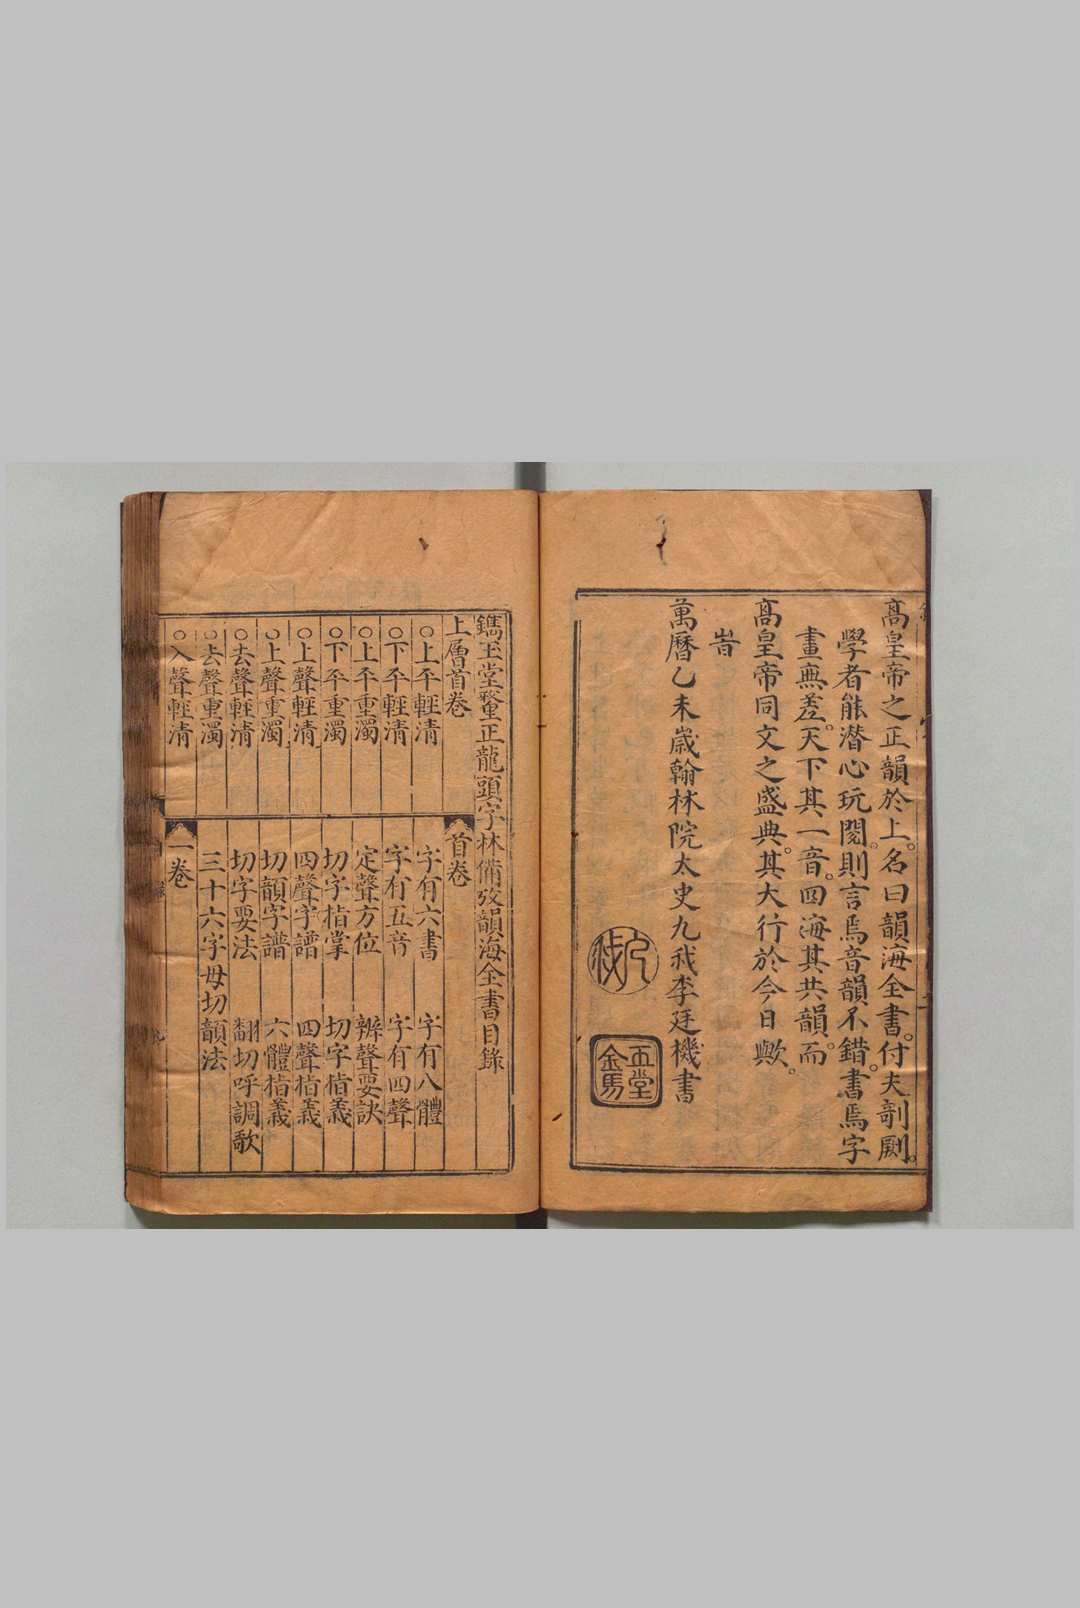 髙皇帝之正韻於上。名曰韻海全書。付夫剞劂。
學者能潜心玩閲。則言焉音韻不錯。書焉字
畫無差。天下其一音。四海其共韻。而
髙皇帝同文之盛典。其大行於今日歟。
旹
萬曆乙未嵗翰林院太史九我李廷機書
九我
玉堂金馬
鐫玉堂釐正龍頭字林備攷韻海全書目錄
上層首卷
○上平輕清
○下平輕清
○上平重濁
○下平重濁
○上聲輕清
○上聲重濁
○去聲輕清
○去聲重濁
○入聲輕清
首卷
字有六書 字有八體
字有五音 字有四聲
定聲方位 辨聲要訣
切字指掌 切字指義
四聲字譜 四聲指義
切韻字譜 六體指義
切字要法 翻切呼調歌
三十六字母切韻法
一卷